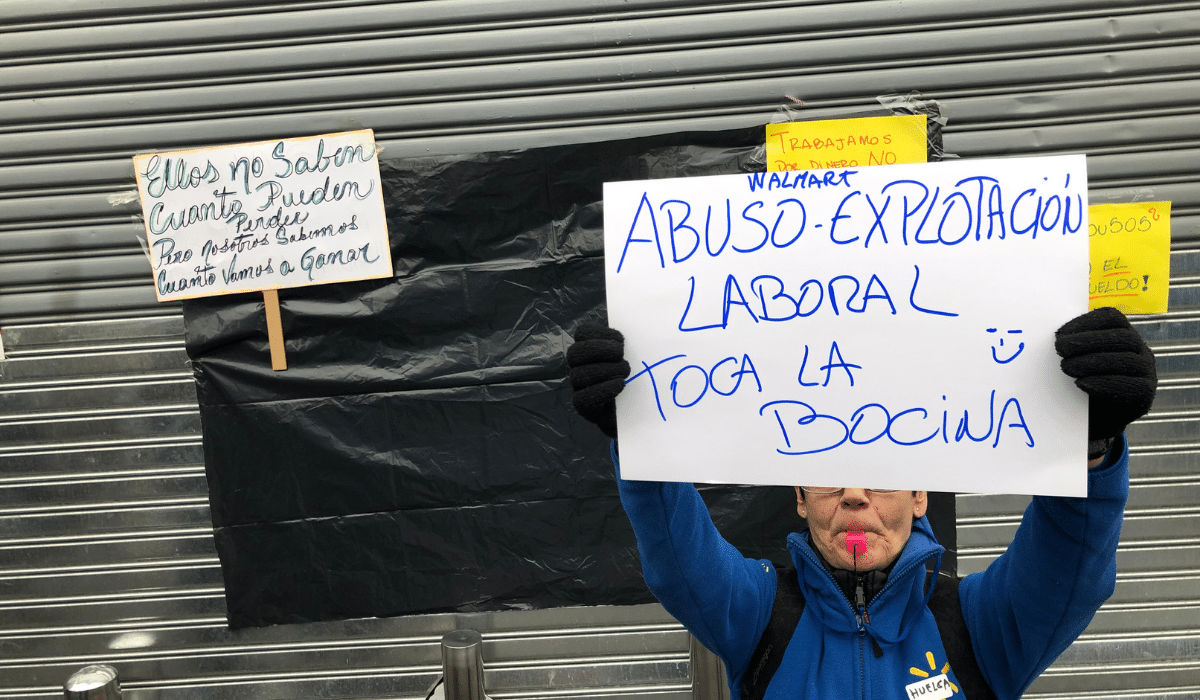 Ellos no Saben
Cuanto Pueden
Perder
Pero Nosotros Sabemos
Cuanto Vamos a Ganar
TRABAJAMOS
POR DINERO NO
WALMART
ABUSO-EXPLOTACIÓN
LABORAL
TOCA LA
BOCINA
EL
HUELGA